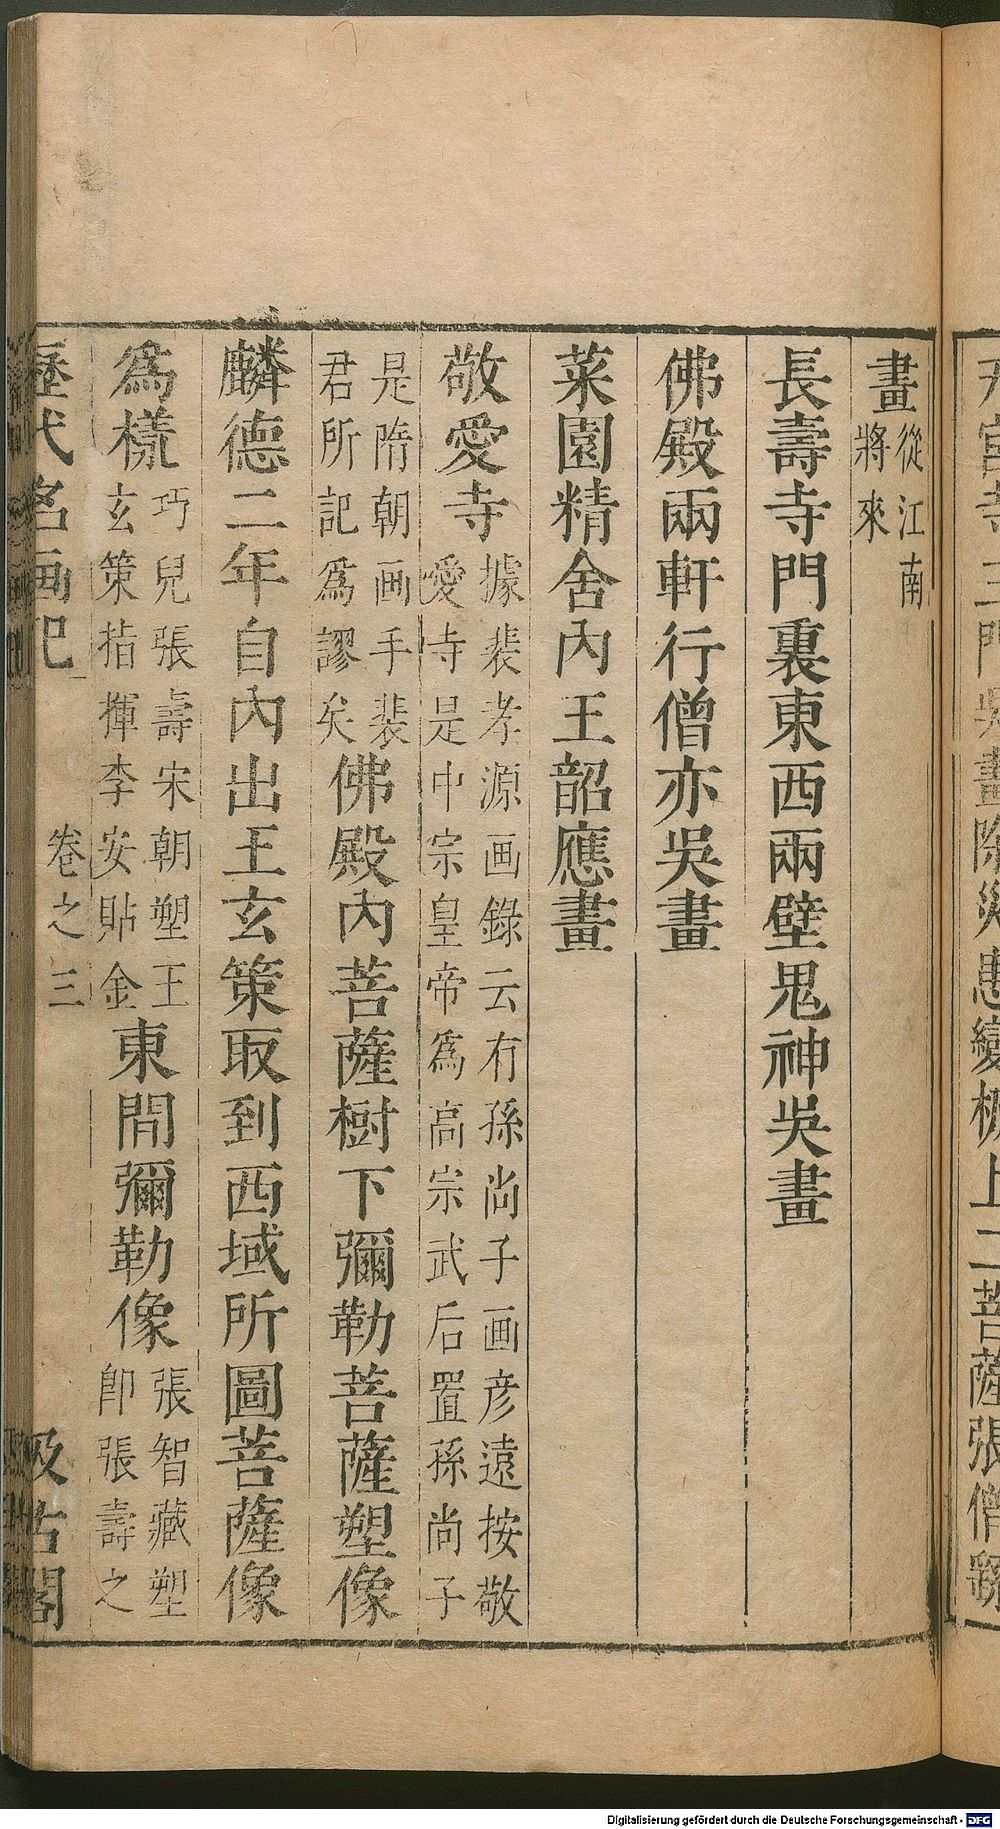 天宮寺三門吳畫除災患變板上二菩薩張僧繇
畫從江南將來
長壽寺門裏東西兩壁鬼神吳畫
佛殿兩軒行僧亦吳畫
菜園精舍內王韶應畫
敬愛寺據裴孝源画錄云有孫尚子画彥遠按敬愛寺是中宗皇帝爲高宗武后置孫尚子
是隋朝画手裴君所記爲謬矣佛殿內菩薩樹下彌勒菩薩塑像
麟德二年自內出王玄策取到西域所圖菩薩像
爲樣巧兒張壽宋朝塑王玄策指揮李安貼金東間彌勒像張智藏塑即張壽之
歷代名画記 卷之三 汲古閣
Digitalisierung gefördert durch die Deutsche Forschungsgemeinschaft - DFG